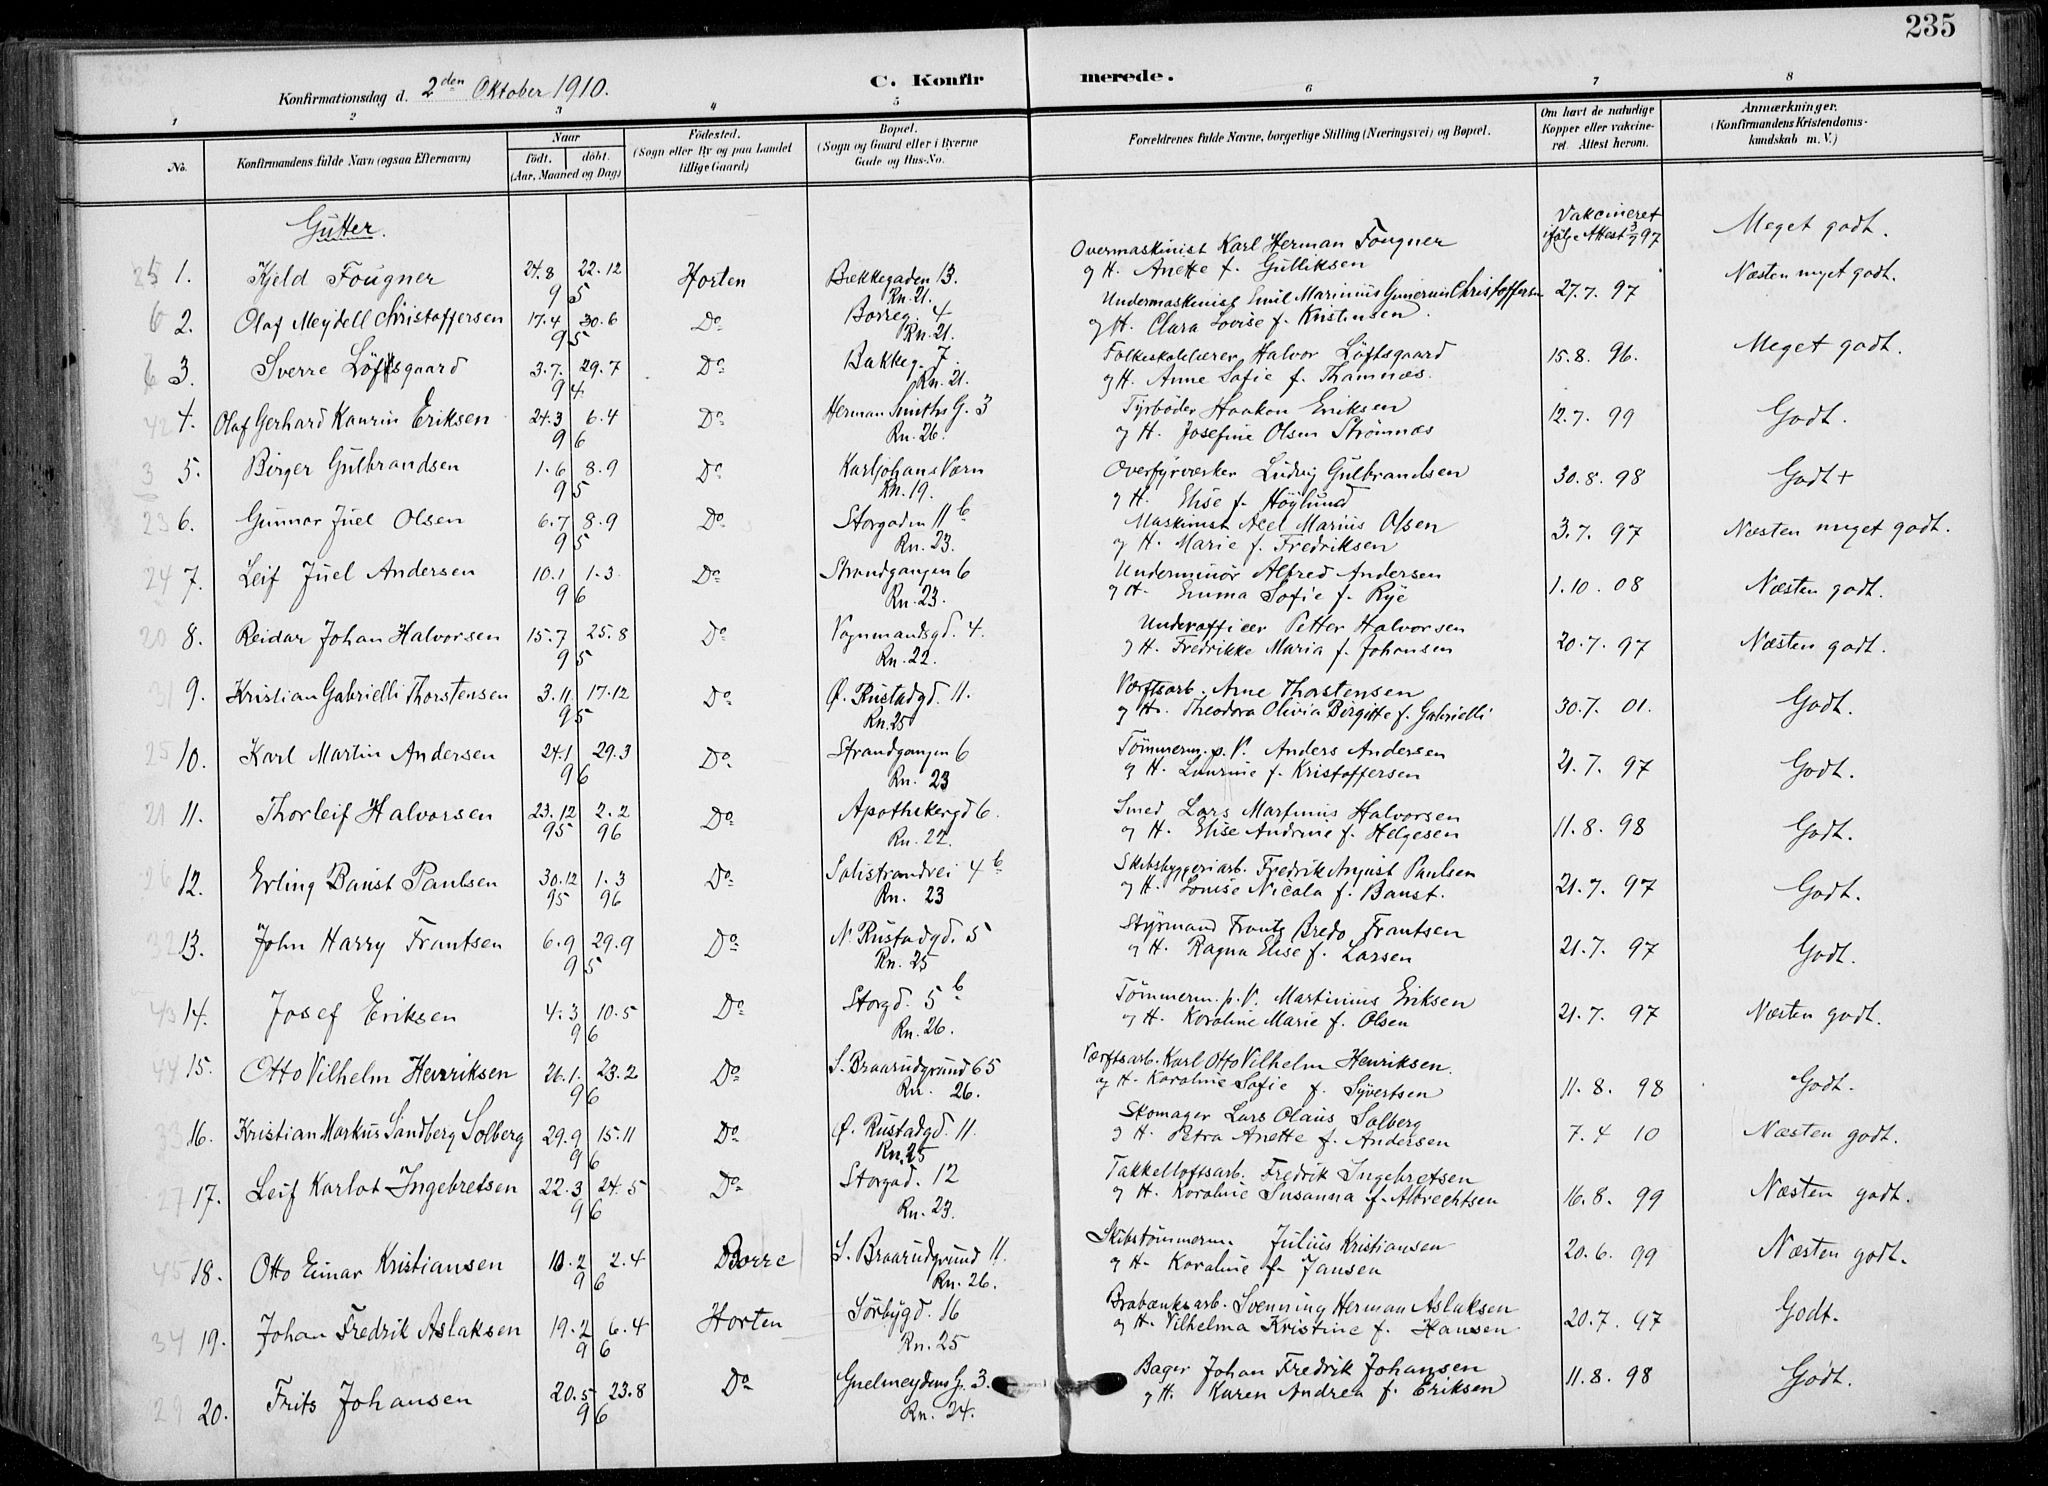 235
Konfirmationsdag d. 2den Oktober 1910.
C. Konfir merede.
1 2 3 4 5 6 7 8
No.
Konfirmandens fulde Navn (ogsaa Efternavn)
Naar
født. døbt.
(Aar, Maaned og Dag)
Fødested.
(Sogn eller By og paa Landet
tillige Gaard)
Bopæl.
(Sogn og Gaard eller i Byerne
Gade og Hus-No.
Forældrenes fulde Navne, borgerlige Stilling (Næringsvei) og Bopæl.
Om havt de naturlige
Kopper eller vakcine-
ret. Attest herom.
Anmærkninger.
(Konfirmandens Kristendoms-
kundskab m. V.)
Gutter.
1. Kjeld Fougner 24.8 22.12 Horten Bækkegaden 13. Overmaskinist Karl Herman Fougner Vakcineret Meget godt.
95 Rn. 21. og H. Anette f. Gulliksen ifølge Attest 3/7 97
2. Olaf Meydell Christoffersen 17.4 30.6 Do Borreg. 4 Undermaskinist Emil Marinius Gunerius Christoffersen 27.7. 97 Næsten meget godt.
95 Rn. 21. og H. Clara Lovise f. Kristensen.
3. Sverre Löftsgaard 3.7. 29.7 Do Bakkeg. 7. Folkeskolelærer Halvor Löftsgaard 15.8. 96. Meget godt.
94 Rn. 21. og H. Anne Sofie f. Thamnæs.
4. Olaf Gerhard Kaurin Eriksen 24.3 6.4 Do Herman Smiths G. 3 Fyrbøder Haakon Eriksen 12.7. 99 Godt.
96 Rn. 26. og H. Josefine Olsen Strømnæs
5. Birger Gulbrandsen 1.6 8.9 Do Karljohans Værn Overfyrværker Ludvig Gulbrandsen 30.8. 98 Godt +
95 Rn. 19. og H. Elise f. Höylund
6. Gunnar Juel Olsen 6.7 8.9 Do Storgaden 11 b Maskinist Axel Marius Olsen 3.7. 97 Næsten meget godt.
95 Rn. 23. og H. Marie f. Fredriksen
7. Leif Juel Andersen 10.1 1.3 Do Strandgangen 6 Underminör Alfred Andersen 1.10. 08 Næsten godt.
96 Rn. 23. og H. Emma Sofie f. Rye
8. Reidar Johan Halvorsen 15.7 25.8 Do Vognmandsgd. 4. Underofficer Petter Halvorsen 20.7. 97 Næsten godt.
95 Rn. 22. og H. Fredrikke Maria f. Johansen
9. Kristian Gabrielli Thorstensen 3.11 17.12 Do Ø. Rustadgd. 11. Værftsarb. Arne Thorstensen 30.7. 01. Godt.
95 Rn. 25 og H. Theodora Olivia Birgitte f. Gabrielli
10. Karl Martin Andersen 24.1 29.3 Do Strandgangen 6 Tömmerm. p. V. Anders Andersen 21.7. 97 Godt.
96 Rn. 23 og H. Laurine f. Kristoffersen
11. Thorleif Halvorsen 23.12 2.2 Do Apothekergd 6. Smed Lars Martinius Halvorsen 11.8. 98 Godt.
95 96 Rn. 22. og H. Elise Andrine f. Helgesen
12. Erling Baust Paulsen 30.12 1.3 Do Solistrandvei 4 b Skibsbyggeriarb. Fredrik August Paulsen 21.7. 97 Godt.
95 96 Rn. 23 og H. Louise Nicola f. Baust.
13. John Harry Frantsen 6.9 29.9 Do N. Rustadgd. 5 Styrmand Frantz Bredo Frantsen 21.7. 97 Godt.
95 Rn. 25 og H. Ragna Elise f. Larsen
14. Josef Eriksen 4.3 10.5 Do Storgd. 5 b Tömmerm. p. V. Martinius Eriksen 21.7. 97 Næsten godt.
96 Rn. 26. og H. Karoline Marie f. Olsen
15. Otto Vilhelm Henriksen 26.1. 23.2 Do S. Braarudgrund 65 Værftsarb. Karl Otto Vilhelm Henriksen. 11.8. 98 Godt.
96 Rn. 26. og H. Karoline Sofie f. Syvertsen
16. Kristian Markus Sandberg Solberg 29.9 15.11 Do Ø. Rustadgd. 11. Skomager Lars Olaus Solberg 7.4 10 Næsten godt.
96 Rn. 25 og H. Petra Anette f. Andersen
17. Leif Karlot Ingebretsen 22.3 24.5 Do Storgad. 12 Takkelloftsarb. Fredrik Ingebretsen 16.8. 99 Næsten godt.
96 Rn. 23. og H. Karoline Susanna f. Albrechtsen
18. Otto Einar Kristiansen 10.2 2.4 Borre S. Braarudgrund 11. Skibstömmerm Julius Kristiansen 20.6. 99 Næsten godt.
96 Rn. 26. og H. Karoline f. Jansen
19. Johan Fredrik Aslaksen 19.2 6.4 Horten Sörbygd. 16 Brabænksarb. Svenning Herman Aslaksen 20.7. 97 Godt.
96 Rn. 25 og H. Vilhelma Kristine f. Hansen
20. Frits Johansen 20.5 23.8 Do Guelmeydens G. 3. Bager Johan Fredrik Johansen 11.8. 98 Godt.
96 Rn. 24. og H. Karen Andrea f. Eriksen